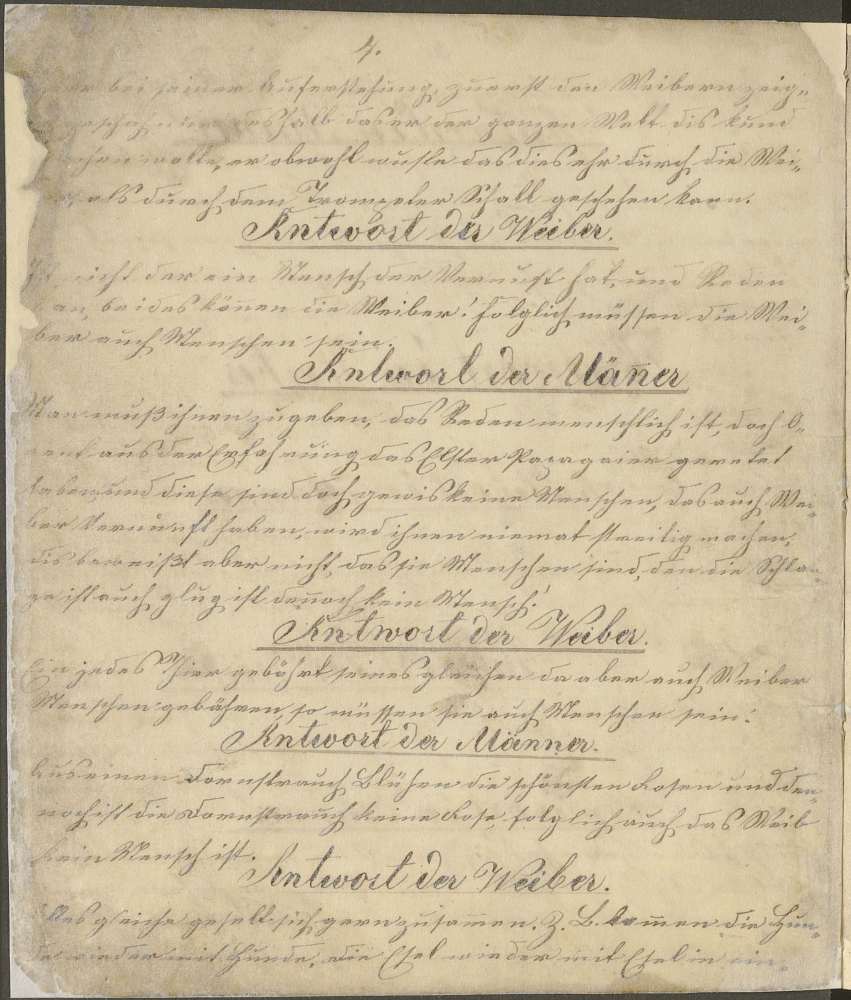 4.
bei seiner Auferstehung, zuerst den Weibern zeig-
deshalb das er der ganzen Welt dis kund
machen wolte, er obwohl wuste das dies ehr durch die Wei-
als durch dem Trompeter Schall geschehen kann.
Antwort der Weiber.
nicht der ein Mensch der Vernunft hat, und Reden
kan, beides könen die Weiber! folglich müssen die Wei-
ber auch Menschen sein.
Antwort der Mäñer
Man muß ihnen zugeben, das Reden menschlich ist, doch
aus der Erfahrung das Elster Papagaier geredet
haben und diese sind doch gewis keine Menschen, das auch Wei-
ber Vernunft haben, wird ihnen niemat streitig machen,
dis beweißt aber nicht, das sie Menschen sind, den die Schla-
ge ist auch glug ist deñoch kein Mensch!
Antwort der Weiber.
Ein jedes Thier gebährt seines gleichen da aber auch Weiber
Menschen gebähren so müssen sie auch Menschen sein!
Antwort der Männer.
Aus einen Dornstrauch Blühen die schönsten Rosen und den-
noch ist die Dornstrauch keine Rose, folglich auch das Weib
kein Mensch ist.
Antwort der Weiber.
gleiche geselt sich gern zusamen. Z. B. komen die Hun-
de wieder mit Hunde, die Esel wieder mit Esel in ein-